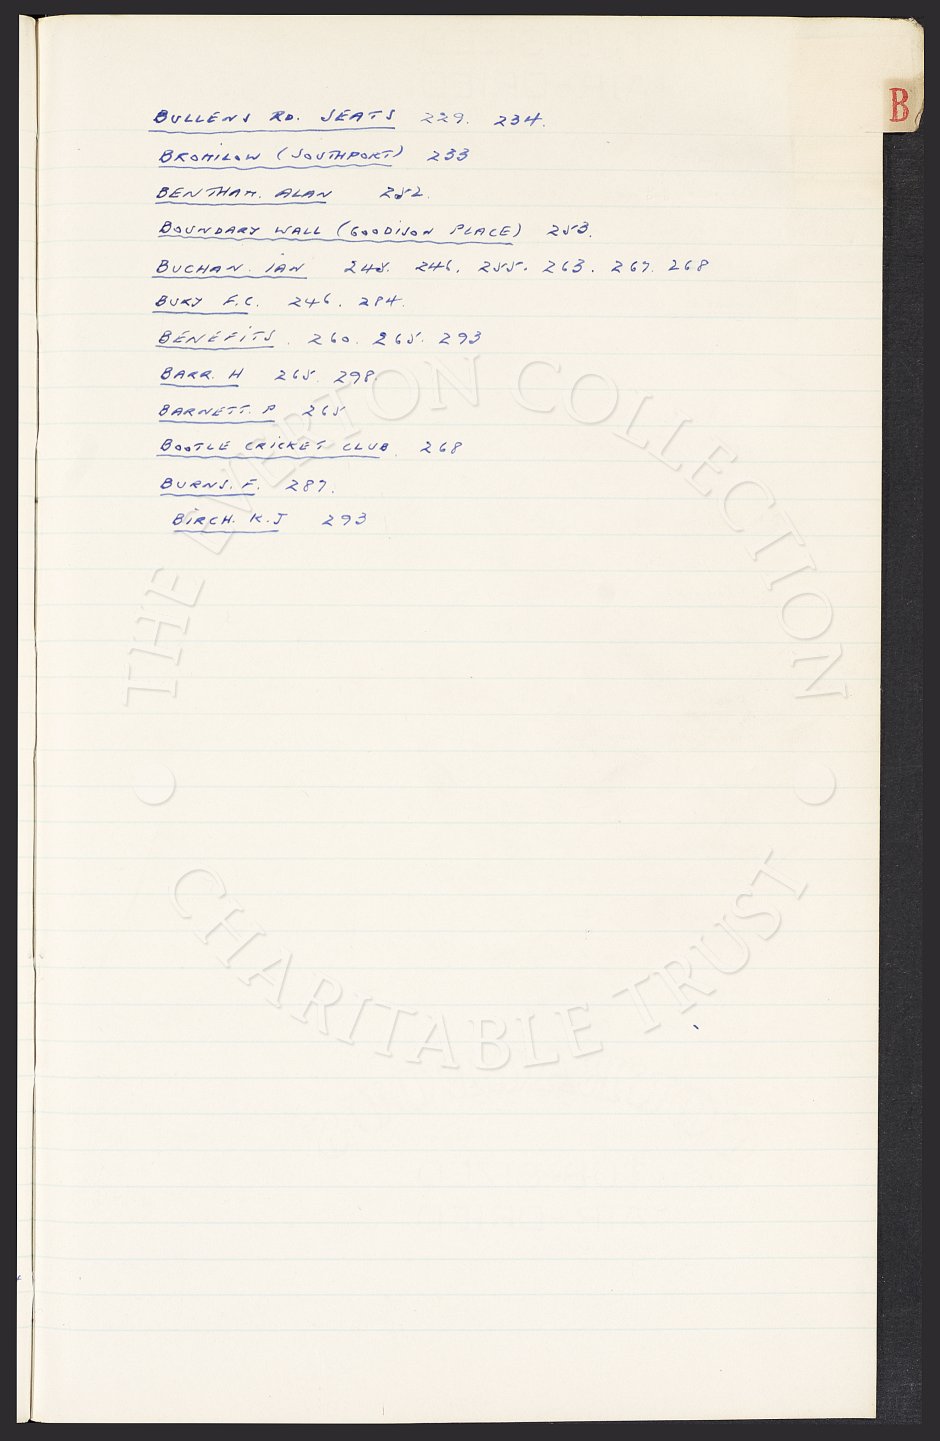 B
BULLENS RD. SEATS 229. 234.
BROMILOW (SOUTHPORT) 233
BENTHAM. ALAN 252.
BOUNDARY WALL (GOODISON PLACE) 253.
BUCHAN. IAN 245. 246. 255. 263. 267. 268
BURY F.C. 246. 284.
BENEFITS. 260. 265. 293
BARR. H 265. 298.
BARNETT. P 265
BOOTLE CRICKET CLUB. 268
BURNS. F. 287.
BIRCH. K.J 293
THE EVERTON COLLECTION
CHARITABLE TRUST